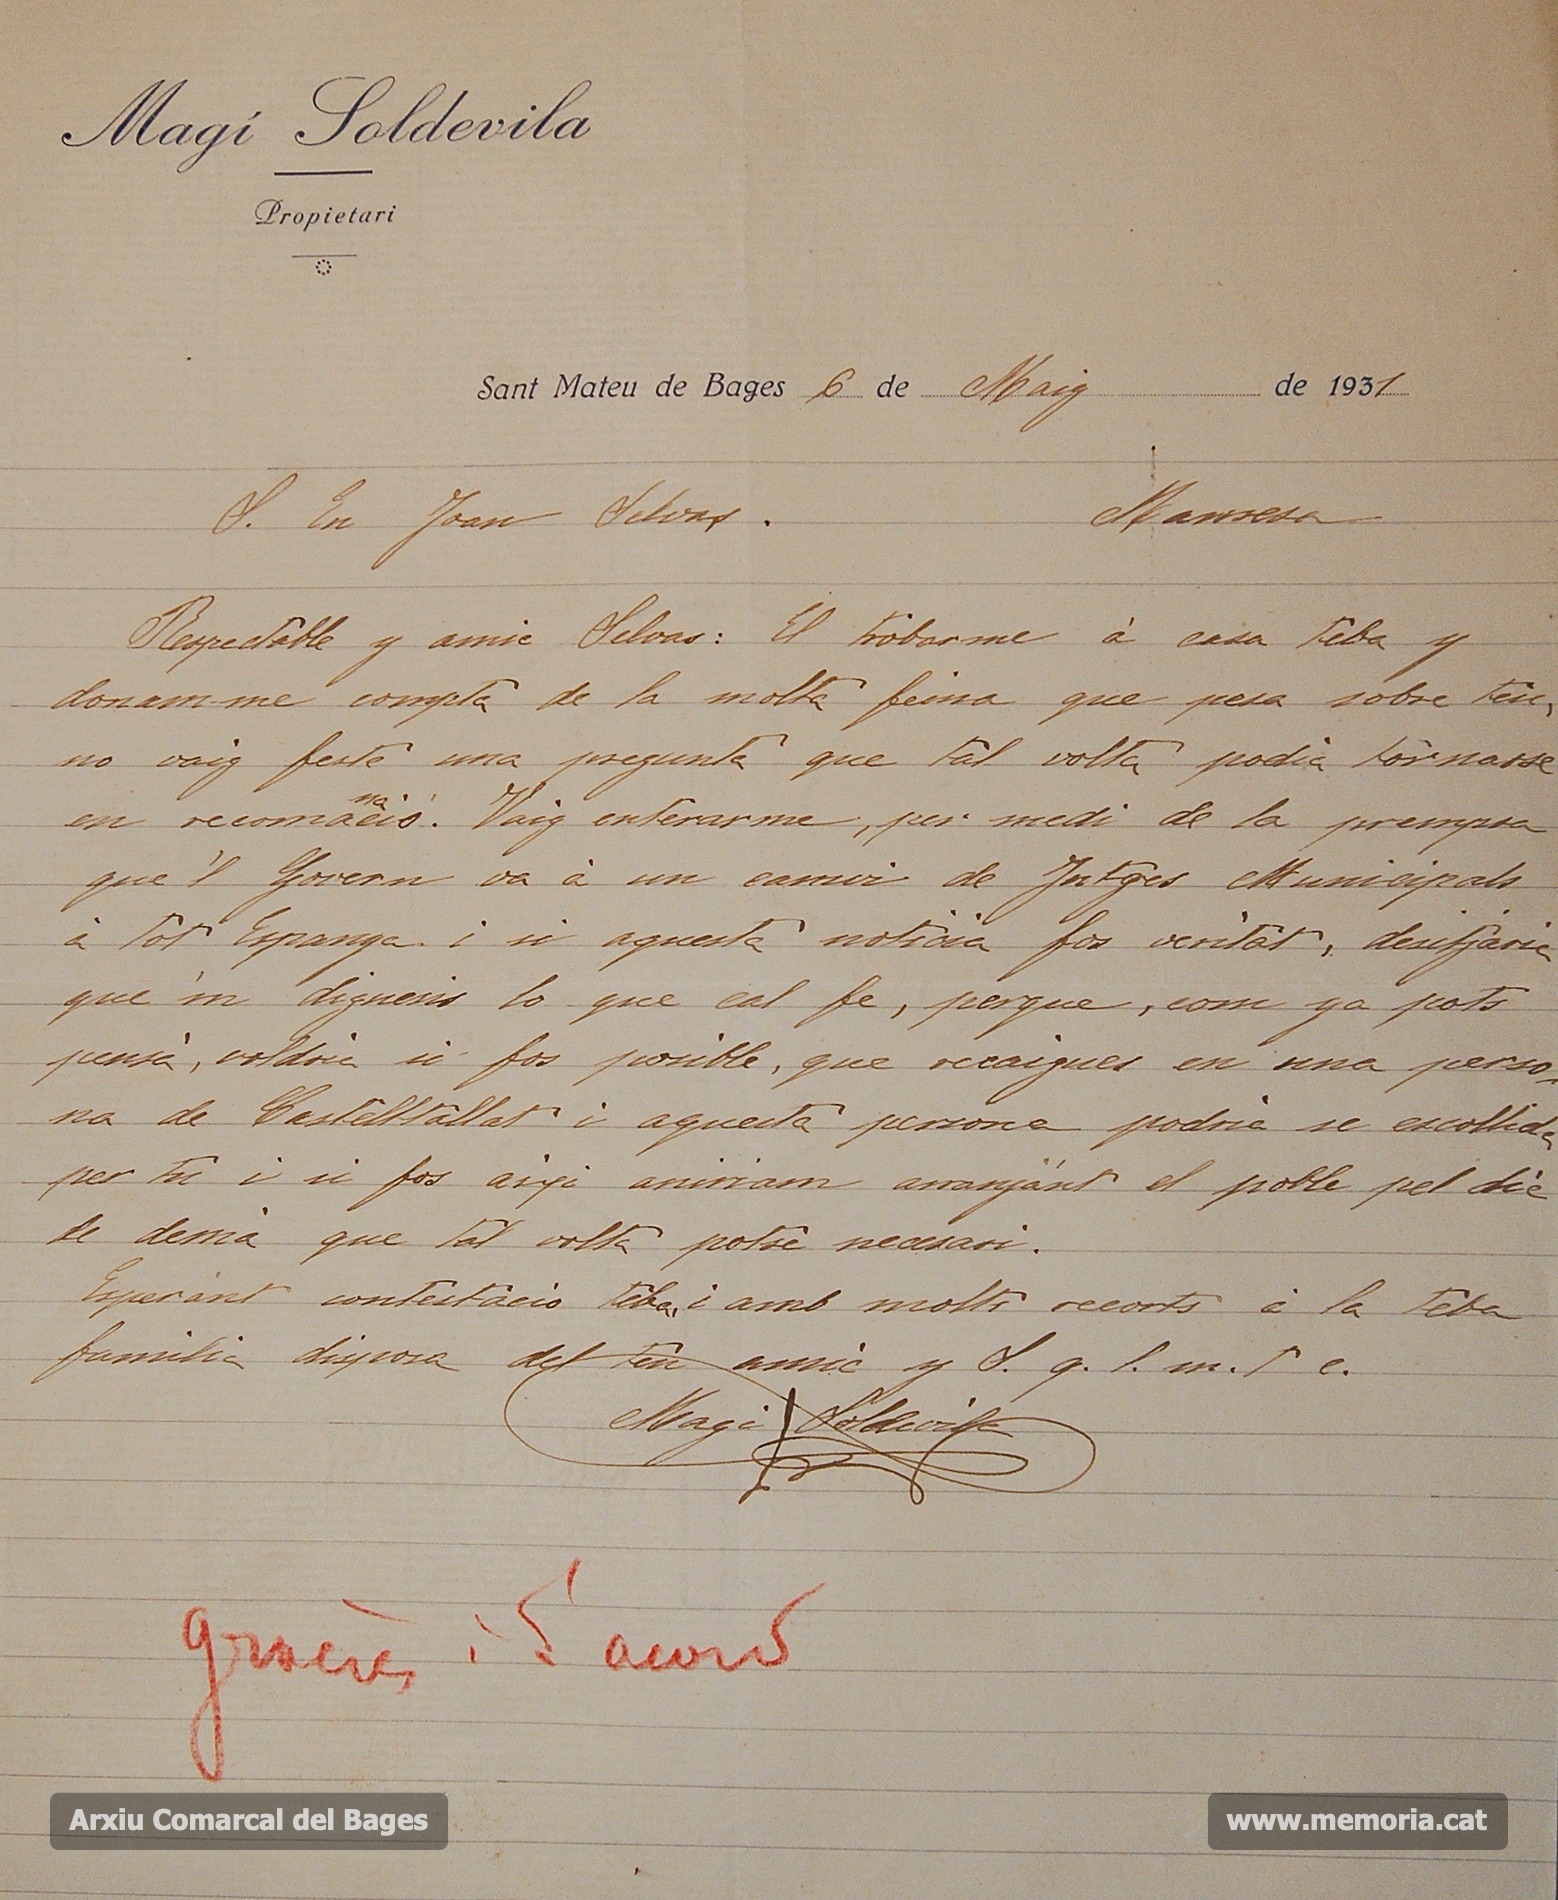 Magí Soldevila
Propietari
Sant Mateu de Bages 6 de Maig de 1931
S. En Joan Selvas. Manresa
Respectable y amic Selvas: El trobarme à casa teba y
donam-me compta de la molta feina que pesa sobre teu,
no vaig ferte una pregunta que tal volta podia tornarse
en recomanació. Vaig enterarme, per medi de la prempsa
que'l Govern va à un camvi de Jutges Municipals
à tot Espanya i si aquesta noticia fos veritat, desitjaria
que'm digueris lo que cal fe, perque, com ya pots
pensà, voldria si fos posible, que recaigues en una perso-
na de Castelltallat i aquesta persona podria se escollida
per tu i si fos aixi aniriam arranjant el poble pel dia
de demà que tal volta potsè necesari.
Esperant contestació teba, i amb molts recorts à la teba
familia disposa del teu amic y S. q. l. m. t e.
Magi Soldevila
gracies i d'acord
Arxiu Comarcal del Bages
www.memoria.cat